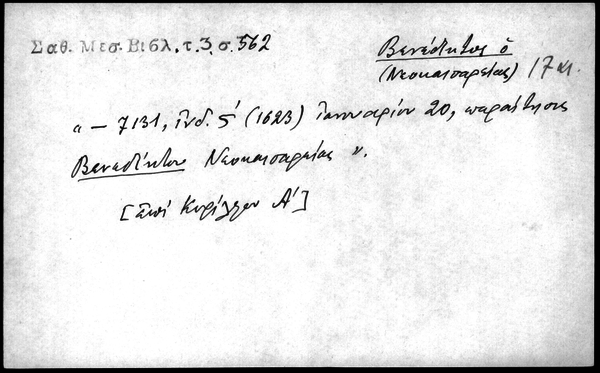 Σαθ. Μεσ. Βιβλ. τ. 3, σ. 562
Βενέδικτος ὁ
(Νεοκαισαρείας) 17 αι.
"— 7131, ἰνδ. ς΄ (1623) ἰανουαρίου 20, παραίτησις
Βενεδίκτου Νεοκαισαρείας".
[ἐπὶ Κυρίλλου Α΄]